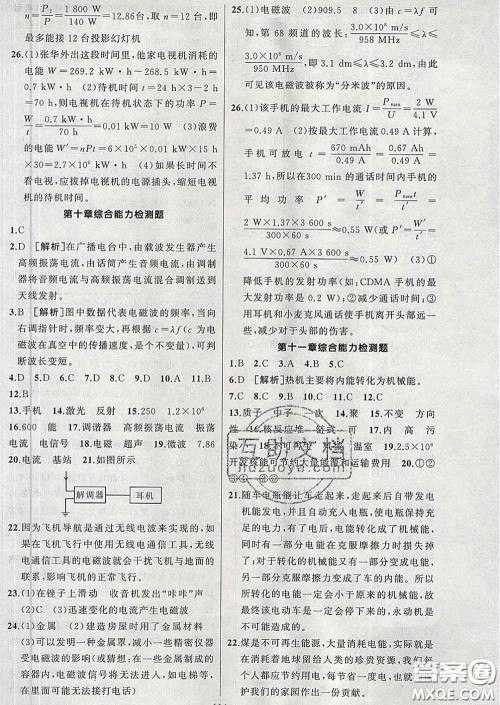 n=P/P₂=1 800 W/140 W=12.86台,取 n=12台,即
最多能接12台投影幻灯机
26.(1)张华外出这段时间里,他家电视机消耗的
电能 W=269.2 kW·h-268.5 kW·h=
0.7 kW·h (2)待机时间 t=24 h×3-2 h
=70 h,电视机在待机状态下的功率 P=W/t
=0.7 kW·h/70 h=0.01 kW=10 W (3)浪费
的电能
(4)如果长时间
不看电视,应拔掉电视机的电源插头,缩短电视
机的待机时间
第十章综合能力检测题
1.C
2.D [解析]在广播电台中,由载波发生器产生
高频振荡电流,由话筒产生音频电流,由调制
器将音频电流与高频振荡电流混合调制送到
天线发射。
3.B [解析]图中数据代表电磁波的频率,当向
右调指针时,频率变大,再根据c=λf(c为电
磁波在真空中的传播速度,是个不变量),可判
断波长变短。
4.D 5.D 6.C 7.D 8.C 9.D 10.A 11.B
12.B
13.手机 14.激光 反射 15.250
16.600 能 17.调谐器 高频振荡电流 振荡
电流 电信号 18.电磁 超声 19.微波 7.86
20.电流 基站 21.如图所示
解调器 耳机
22.因为飞机导航是通过无线电波来实现的,如
果在飞机飞行中使用无线电通信工具,无线
电通信工具的电磁波就会干扰飞机与地面的
联系,影响飞机的正常飞行。
23.(1)在锉子上滑动 收音机发出“咔咔”声
(2)小 (3)迅速变化的电流产生电磁波
24.(1)金属 (2)建造房屋时用了金属材料
(3)可以发明一种金属罩,减小一些精密仪器
受电磁波的影响(或有一些金属制成的容器
在使用时可能给人们带来不便,如电梯等,在
里面可能无法接打电话)
25.(1)电磁波 (2)909.5 8 (3)由c=λf可
知,第68频道的波长:
3.0×10⁸ m/s/958 MHz≤λ≤3.0×10⁸ m/s/950 MHz,即 3.1 dm≤λ≤3.2 dm,
所以该电磁波被称为“分米波”的原因。
26.(1)该手机的最大工作电流 I=Pmax/U=2 W/4.1 V
≈0.49 A (2)按最大工作电流0.49 A计算,
手机可放电 t=670 mAh/I=0.67 Ah/0.49 A≈
1.37 h,所以在300 min的通话时间内手机的
平均功率 P′=W/t′=Pmaxt/t′=
2 W×1.37×3 600 s/300×60 s≈0.55 W(或 P′=W/t′=
4.1 V×0.67 A×3 600 s/300×60 s≈0.55 W) (3)①
降低手机的最大发射功率(如:CDMA手机的最
大发射功率是0.2 W);②减少通话时间;③
使用耳机和小麦克风通话使手机离开头部远一
些,减少对于头部的伤害。
第十一章综合能力检测题
1.B 2.C 3.A 4.B 5.C
6.D [解析]热机主要将内能转化为机械能。
7.C 8.C 9.B 10.A 11.B 12.C
13.质子 中子 一次 14.减少 15.不变 方向
性 16.核反应堆 链式 可 17.内 高 污
18.二次 19.2.5×
开发核能可节约大量能源和运输费用 20.①②
④
21.随车电瓶能让车走起来,走起来后自带发电
机能发电,并且自动充入电瓶,一部分又供电
动机使用,电能又转化为机械能,一部分机械
能由车在克服摩擦力时损失掉
了;另一部分机械能转化为电能,电能又有
一部分在克服摩擦力中消耗。所以,车上的
电能一定会小于原来的电能,如此循环下去,
最终一定是电动车会停下来的,不可能形成
永动机。
22.煤是不可再生能源,大量的消耗煤,实际就是
在消耗着地球留给人类的珍贵资源,我们每
个人都应节约能源,节约每一度电,也是为保
护我们的家园作出一份贡献。
互助文档
huzhuwd.com
答案圈
MXQE.COM